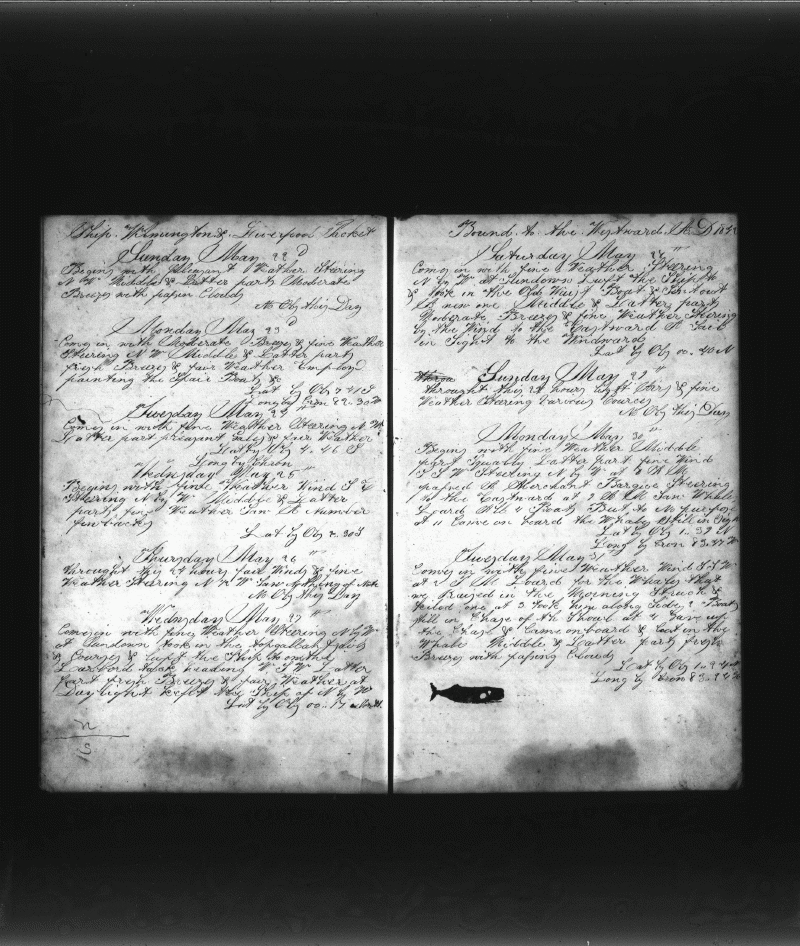 Ship Wilmington & Liverpool Packet
Sunday May 22d
Begins with Pleasant Weather Steering
N W Middle & Latter parts Moderate
Breezes with passing Clouds
No Obs this Day
Monday May 23d
Comes in with Moderate Breezes & fine Weather
Steering N W Middle & Latter parts
fresh Breezes & fair Weather Employed
painting the Spair Boats &c
Lat by Obs
Long by Cron 82.30
Tuesday May 24th
Comes in with fine Weather Steering N W
Latter part pleasant Gales & fair Weather
Lat by Obs 4.46 S
Long by Chron
Wednsday May 25th
Begins with fine Weather Wind S E
Steering N by W Middle & Latter
parts fine Weather Saw A Number
finbacks
Lat by Obs 2.30 S
Thursday May 26th
throught this 24 hours fair Winds & fine
Weather Steering N W Saw Nothing of Note
No Obs this Day
Wednsday May 27th
Comes in with fine Weather Steering N by W
at Sundown took in the topgallan Sails
& Courses & Luft the Ship to on the
Larbord tack heading W S W Latter
part fresh Breezes & fair Weather at
Daylight kept the Ship of N by W
Lat by Obs 00.17 North
N
S
Bound to the Westward A D 1842
Saturday May 28th
Comes in with fine Weather Steering
N by W at Sundown Luft the Ship to
& took in the Old Waist Boat & put out
A new one Middle & Latter parts
Moderate Breezes & fine Weather Steering
by the Wind to the Eastward A Sail
in Sight to the Windward
Lat by Obs 00.40 N
Sunday May 29th
throught this 24 hours Light Airs & fine
Weather Steering Various Cources
No Obs this Day
Monday May 30th
Begins with fine Weather Middle
part Squaly Latter part fine Wind
S S W Steering N by W at
passed A Merchant Barque Steering
to the Eastward at 9 A M Saw Whales
Loard the 4 Boats But to No purpose
at 11 Came on board the Whales Still in Sight
Lat by Obs 1.32 N
Long by Cron 83.47 W
Tuesday May 31st
Comes in with fine Weather Wind S S W
at 2 P M Loard for the Whales that
we Raised in the Morning Struck &
Kiled one at 3 took him along Side 3 Boats
Still in Chase of th Shoal at 4 Gave up
the Chase & Came on board & Cut in the
Whale Middle & Latter parts fresh
Breezes with passing Clouds
Lat by Obs
Long by Cron